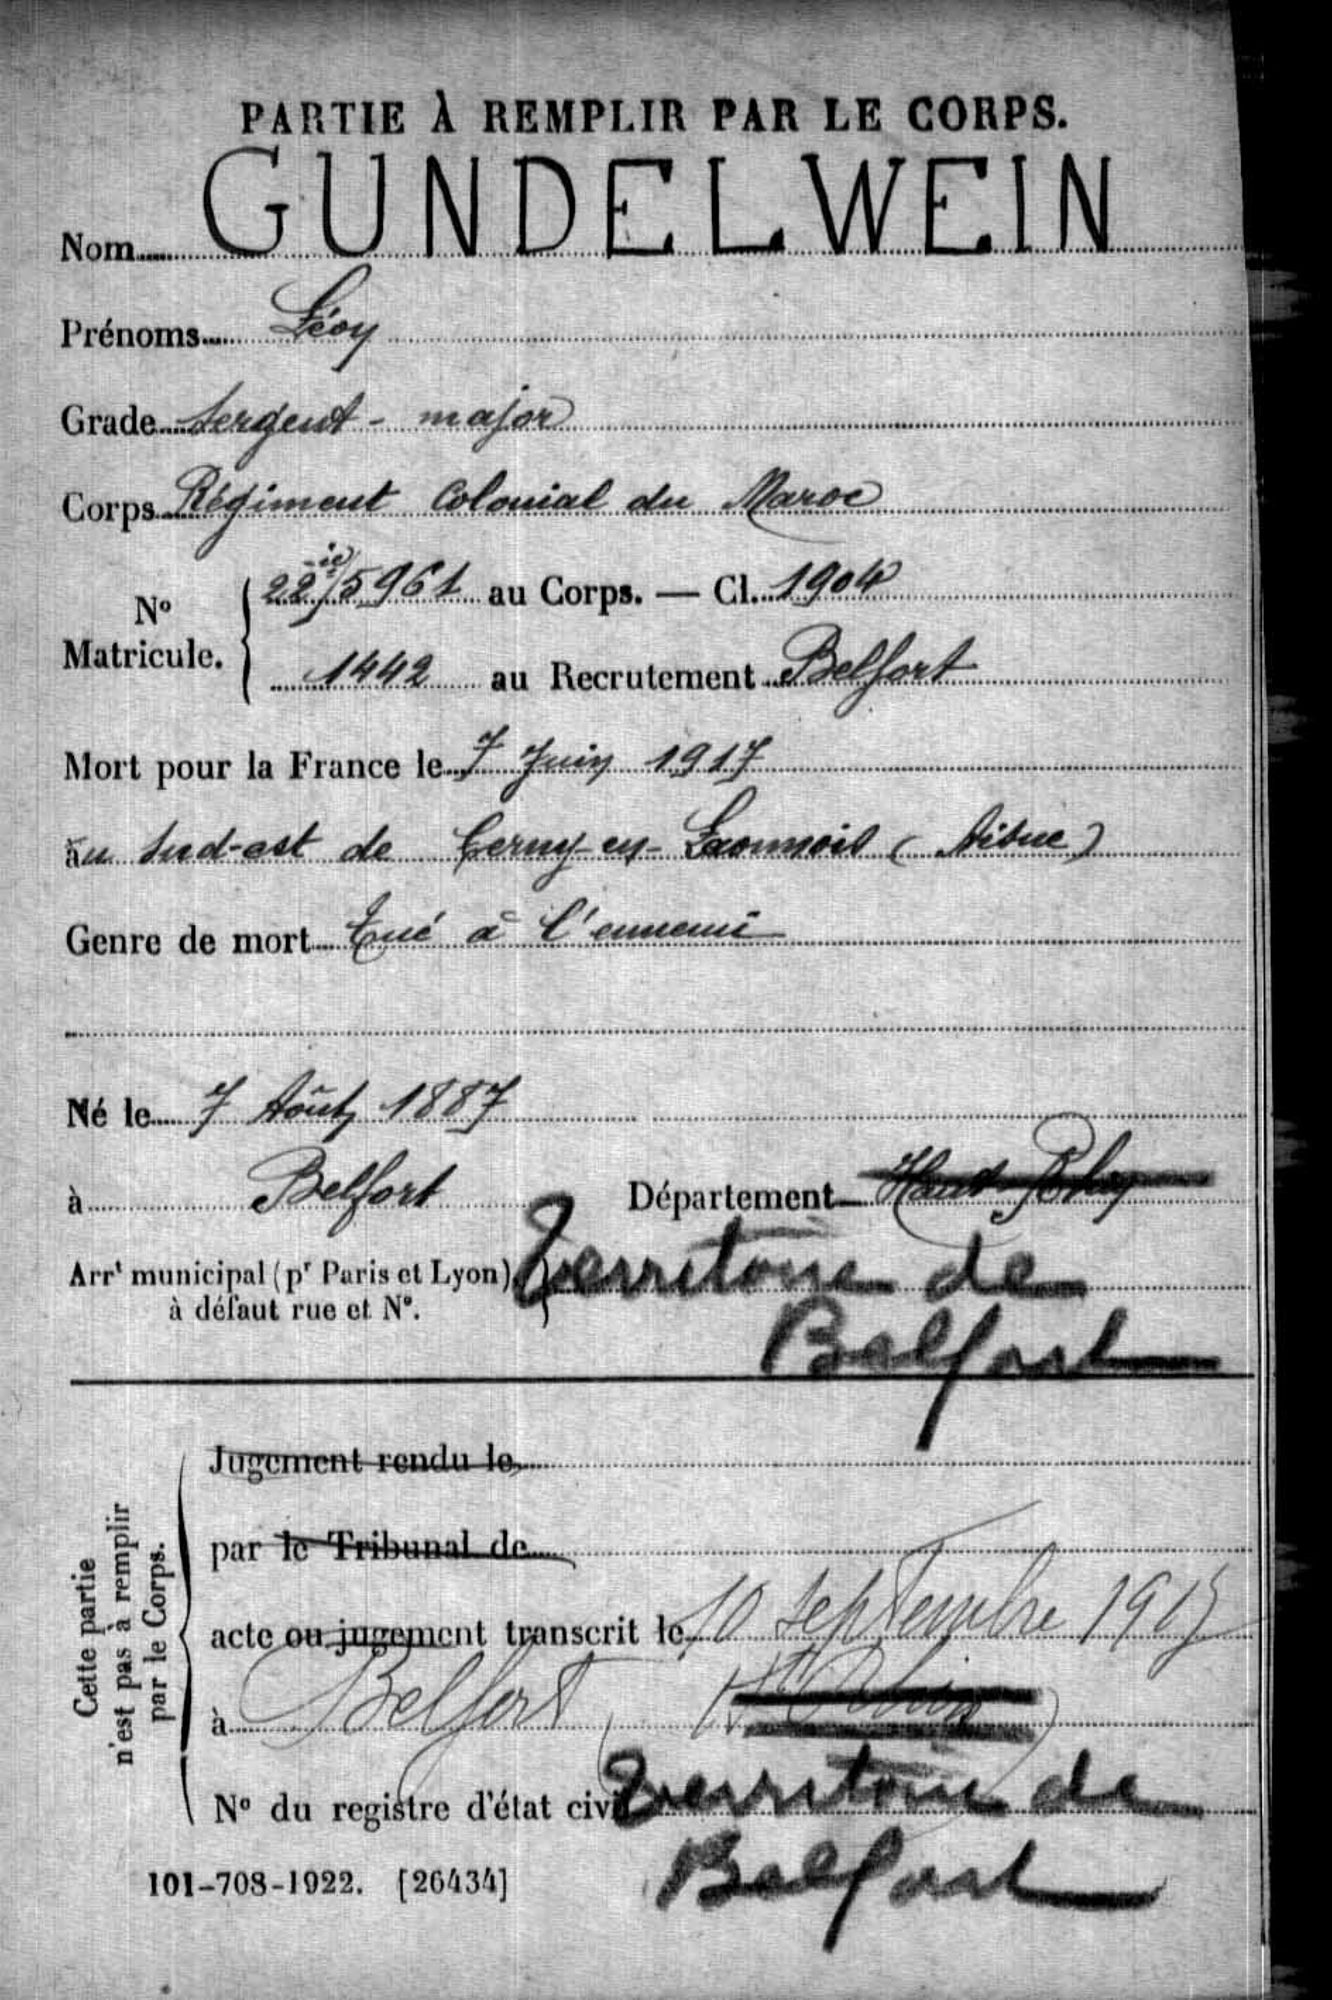 PARTIE À REMPLIR PAR LE CORPS.
Nom GUNDELWEIN
Prénoms Léon
Grade Sergent-major
Corps Régiment Colonial du Maroc
N° Matricule. 22ie/5961 au Corps. — Cl. 1904
1442 au Recrutement Belfort
Mort pour la France le 7 Juin 1917
au Sud-est de Cerny-en-Laonnois (Aisne)
Genre de mort Tué à l'ennemi
Né le 7 Août 1887
à Belfort Département Haut-Rhin
Arrt municipal (pr Paris et Lyon), à défaut rue et N°.
Territoire de
Belfort
Cette partie n'est pas à remplir par le Corps.
Jugement rendu le
par le Tribunal de
acte ou jugement transcrit le 10 septembre 1917
à Belfort (Ht Rhin)
N° du registre d'état civil
Territoire de
Belfort
101-708-1922. [26434]